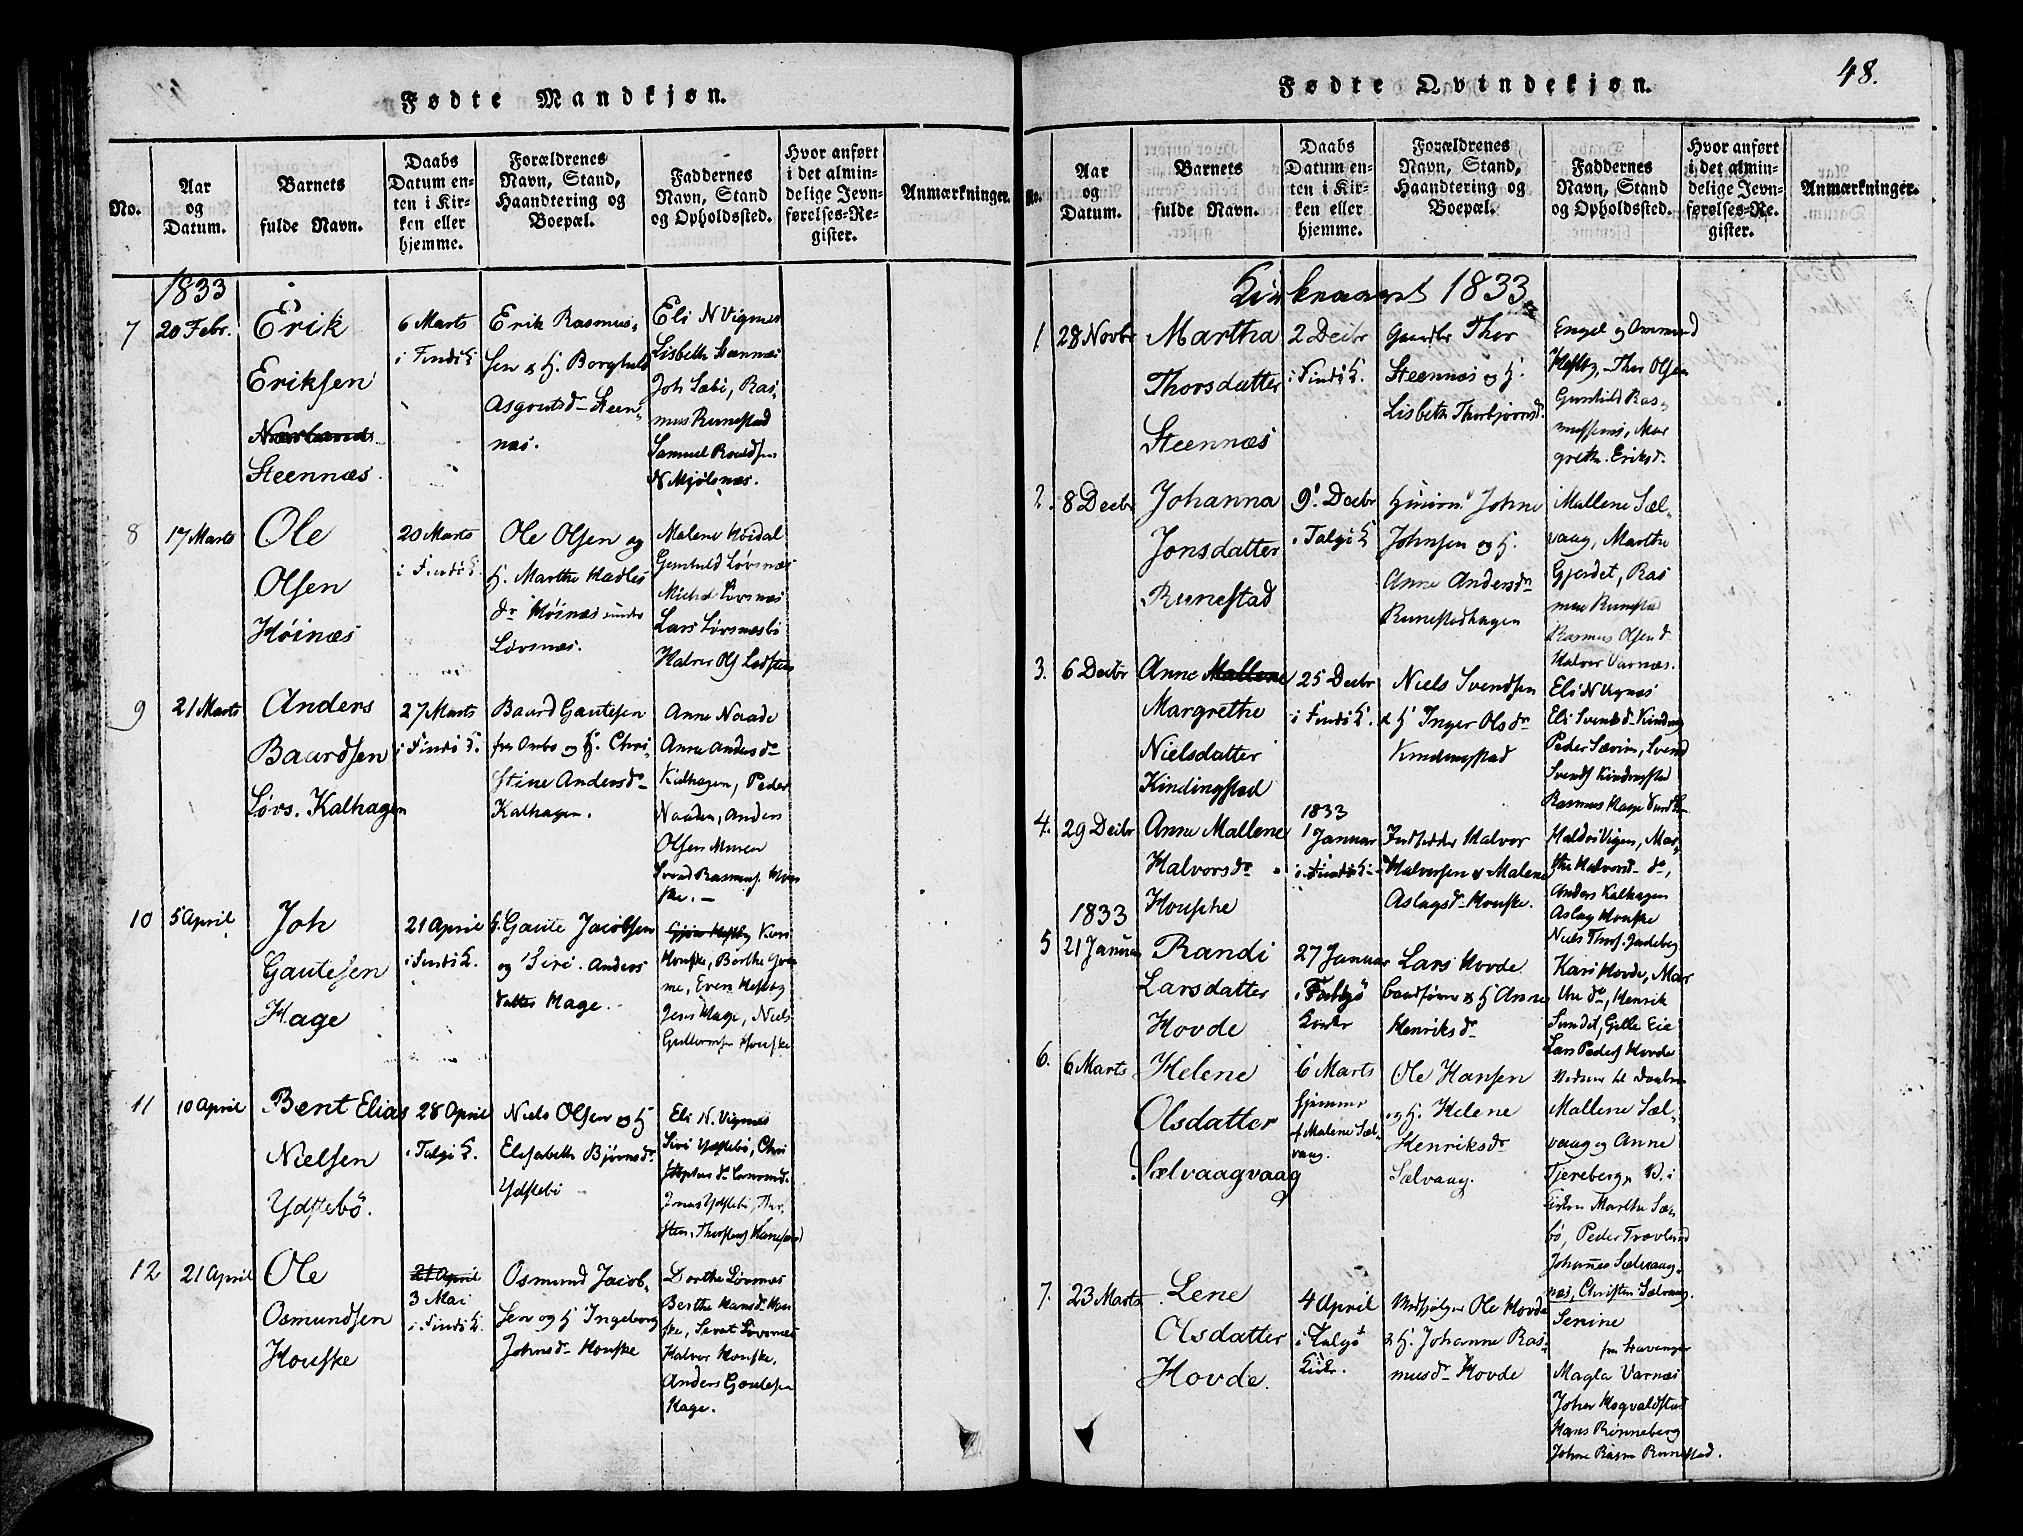 Fødte Mandkjøn.
No.
Aar
og
Datum.
Barnets
fulde Navn.
Daabs
Datum en-
ten i Kir-
ken eller
hjemme.
Forældrenes
Navn, Stand,
Haandtering og
Boepæl.
Faddernes
Navn, Stand
og Opholdssted.
Hvor anført
i det almin-
delige Jevn-
førelses-Re-
gister.
Anmærkninger.
1833
7
20 Febr.
Erik
Eriksen
Steennæs.
6 Marts
i Findö K.
Erik Rasmus-
sen & H. Borghild
Asgoutsdr Steen-
næs.
Eli N Vignes
Lisbeth Steennæs
Joh Sæbö, Ras-
mus Runestad
Samuel
N Mjölsnæs.
8
17 Marts
Ole
Olsen
Höinæs
20 Marts
i Findö K.
Ole Olsen og
H. Marthe Hadles
dr Höinæs under
Lövsnæs.
Malene Höidal
Gunhild Lövsnæs
Michel Lövsnæs
Lars Lövsnæsbö
Halvor Ols
9
21 Marts
Anders
Baardsen
Lövs. Kalhagen
27 Marts
i Findö K.
Baard Gautesen
fra Arbo og H. Chri-
stine Andersdr
Kalhagen.
Anne Naade
Anne Andersdr
Kalhagen, Peder
Naaden, Anders
Olsen
Svend Rasmus. Hou-
ske. –
10
5 April
Joh
Gautesen
Hage
21 April
i Findö K.
H. Gaute Jacobsen
og Siri Anders
datter Hage.
Kari
Houske, Berthe
Even Hesbøg
Jens Hage, Niels
Houske
11
10 April
Bent Elias
Nielsen
Ydstebö.
28 April
i Talgö K.
Niels Olsen og H
Elisabeth Björnsdr
Ydstebö
Eli N. Vignes
Siri Ydstebö, Chri
Jonas Ydstebö, Thor-
12
21 April
Ole
Osmundsen
Houske
21 April
3 Mai
i Findö K.
Osmund Jacob-
sen og H Ingeborg
Johnsdr Houske
Dorthe Lövsnæs
Berthe Hansdr Hou-
ske, Lövsnæs
Halvor Houske,
Anders Gautesen
Hage.
Fødte Qvindekjøn.
48.
No.
Aar
og
Datum.
Barnets
fulde Navn.
Daabs
Datum en-
ten i Kir-
ken eller
hjemme.
Forældrenes
Navn, Stand,
Haandtering og
Boepæl.
Faddernes
Navn, Stand
og Opholdssted.
Hvor anført
i det almin-
delige Jevn-
førelses-Re-
gister.
Anmærkninger.
Kirkeaaret 1833
1
28 Novbr
Martha
Thorsdatter
Steennæs
2 Decbr
i Findö K.
Gaardbr Thor
Steennæs og H.
Lisbeth Thorbjörnsd.
Engel og Ommund
Hesby, Thor Olsen
Gunhild Ras-
Mar
grethe Eriksd.
2.
8 Decbr
Johanna
Jonsdatter
Runestad
9 Decbr
i Talgö K
Huusm. Johne
Johnsen og H.
Anne Andersdr
Runestadhagen
Mallene Sæl-
vaag, Marthe
Gjerdet, Ras
mus Runestad
Rasmus Olsen d.
Halvor Varnæs.
3.
6 Decbr
Anne Mallene
Margrethe
Nielsdatter
Kindingstad
25 Decbr
i Findö K.
Niels Svendsen
& H Inger Olsdr
Kindingstad
Eli N Vignæs
Eli Svendsdr Kinding
Peder Sævim, Svend
Svends Kindingstad
Rasmus Hage
4.
29 Decbr
Anne Mallene
Halvorsdr
Houske
1833
1 Januar
i Findö K.
Halvor
Halvorsen & Malene
Aslagsdr Houske.
Vigen, Mar-
the Halvorsdr do,
Anders Kalhagen
Aslag Houske
Niels Thors. Judeberg
1833
5
21 Januar
Randi
Larsdatter
Hovde
27 Januar
i Talgö
Kirke
Lars Hovde
& H Anne
Henriksdr
Kari Hovde, Mar
the do, Henrik
Sundet, Gille Eie
Lars Peders Hovde
6.
6 Marts
Helene
Olsdatter
Sælvaagvaag
6 Marts
hjemme
af Malene Sæl-
vaag.
Ole Hansen
og H. Helene
Henriksdr
Sælvaag.
Mallene Sæl-
vaag og Anne
Tjereberg, V. i
Kirken Marthe Sæ-
bö, Peder Trovland
Johannes Sælvaag-
næs, Christen Sælvaag.
7.
23 Marts
Lene
Olsdatter
Hovde.
4 April
i Talgö
Kirke.
Ole Hovde
& H. Johanne Ras-
musdr Hovde
Serine
fra Stavanger
Magla Varnæs
Johen Hogvaldstad
Hans Rönneberg
Johne Rasm Runestad.